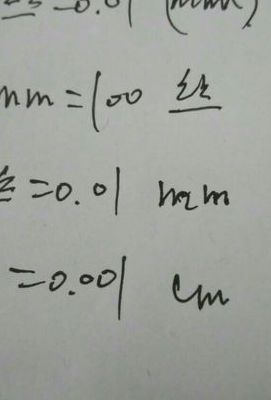 丝=0.01 (mm)
mm=100 丝
丝=0.01 mm
=0.001 cm